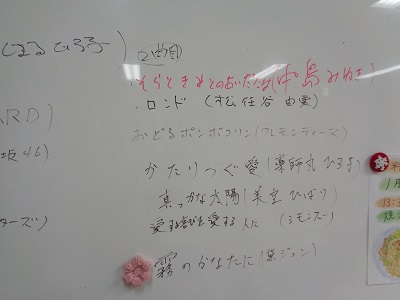 2曲目
・そらときみとのあいだに(中島みゆき)
・ロンド (松任谷由実)
ARD)
おどるポンポコリン(クレモンティーヌ)
坂46)
かたりつぐ愛(薬師丸ひろ子)
真っかな太陽(美空ひばり)
ターズ)
愛する人に (シモンズ)
霧のかなたに(黛ジュン)
1月